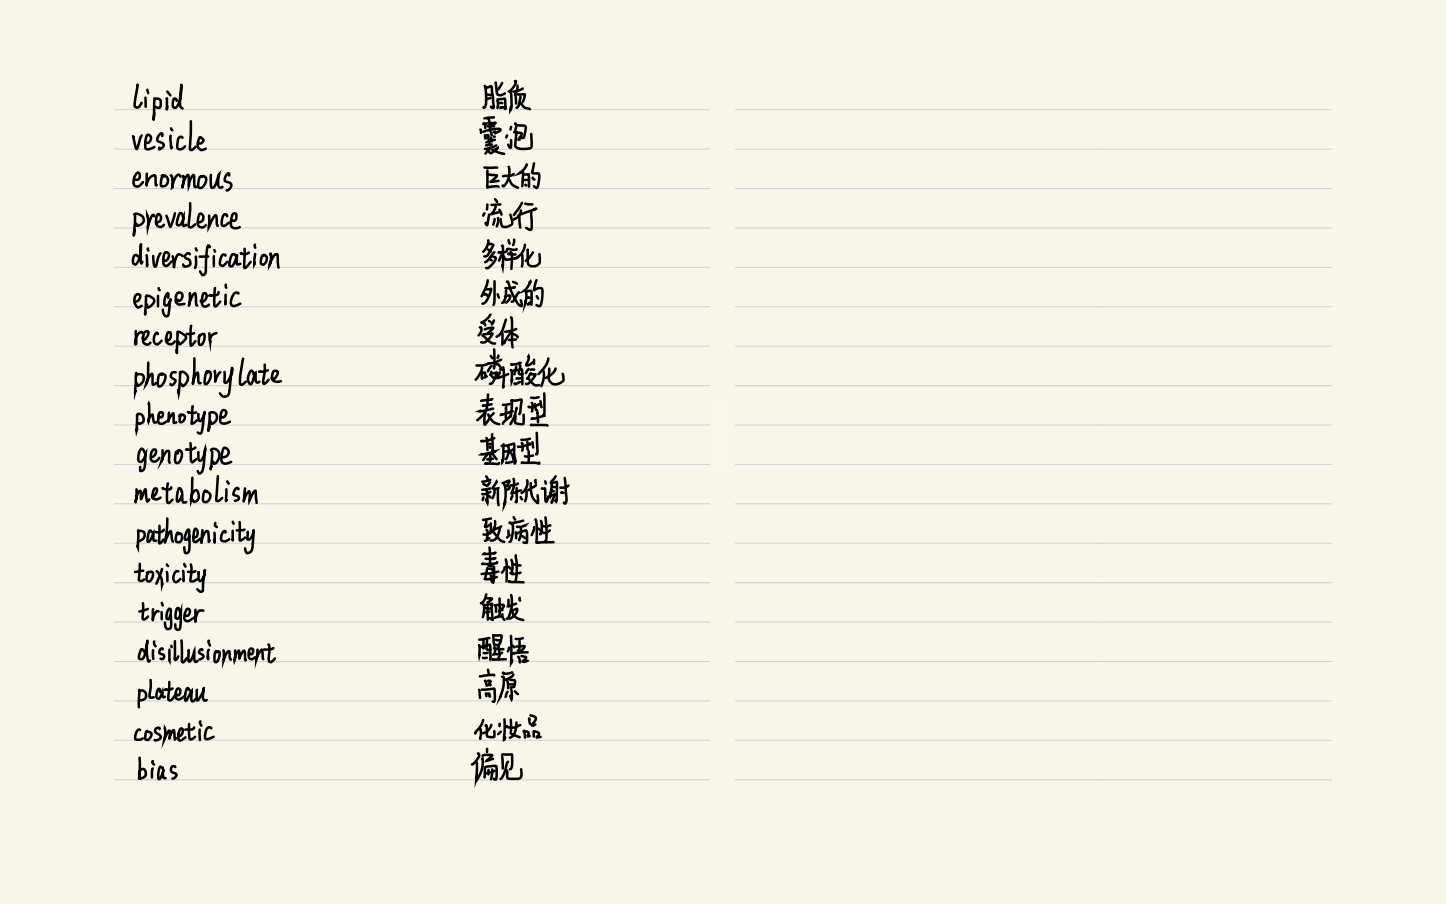 lipid 脂质
vesicle 囊泡
enormous 巨大的
prevalence 流行
diversification 多样化
epigenetic 外成的
receptor 受体
phosphorylate 磷酸化
phenotype 表现型
genotype 基因型
metabolism 新陈代谢
pathogenicity 致病性
toxicity 毒性
trigger 触发
disillusionment 醒悟
plateau 高原
cosmetic 化妆品
bias 偏见